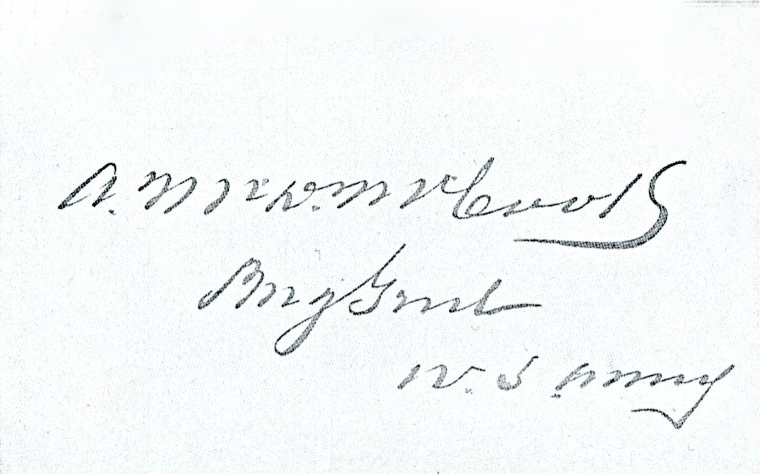 A. McD. McCook
Brig Genl
U. S. Army